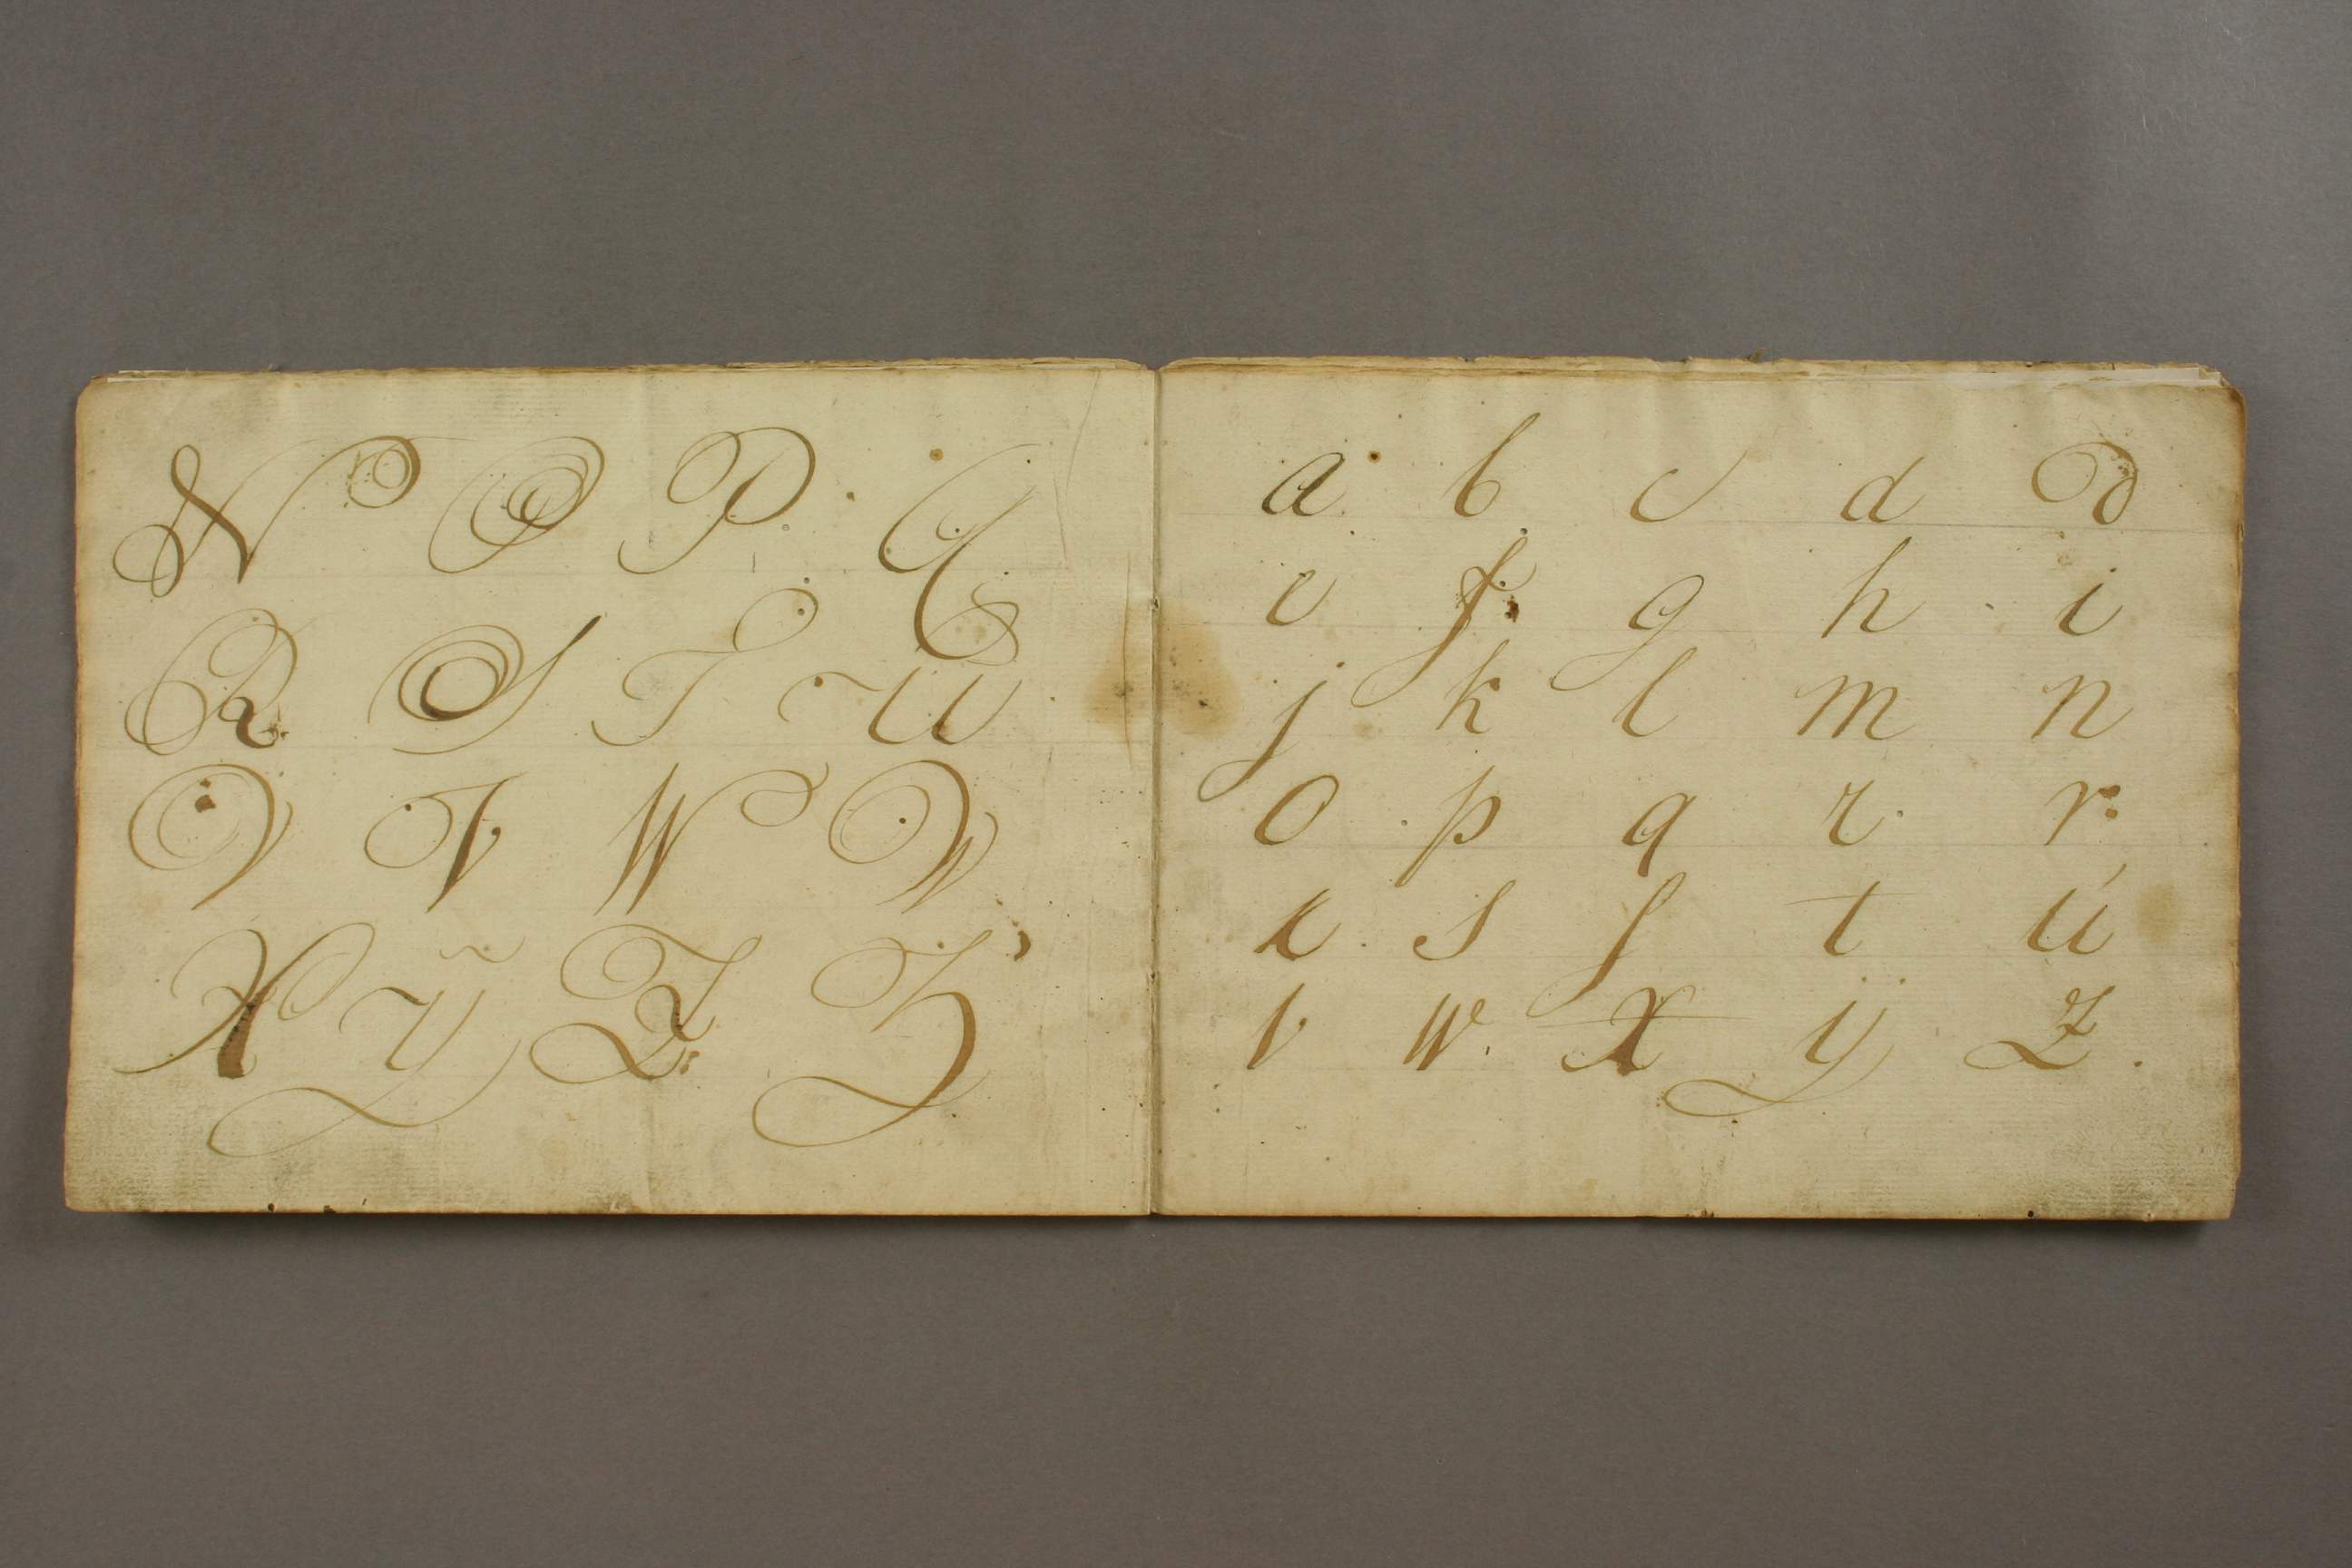 N O P Q
R S T U
V V W W
X Y Z Z
a b c d d
e f g h i
j k l m n
o p q r r
s s ſ t u
v w x ÿ z